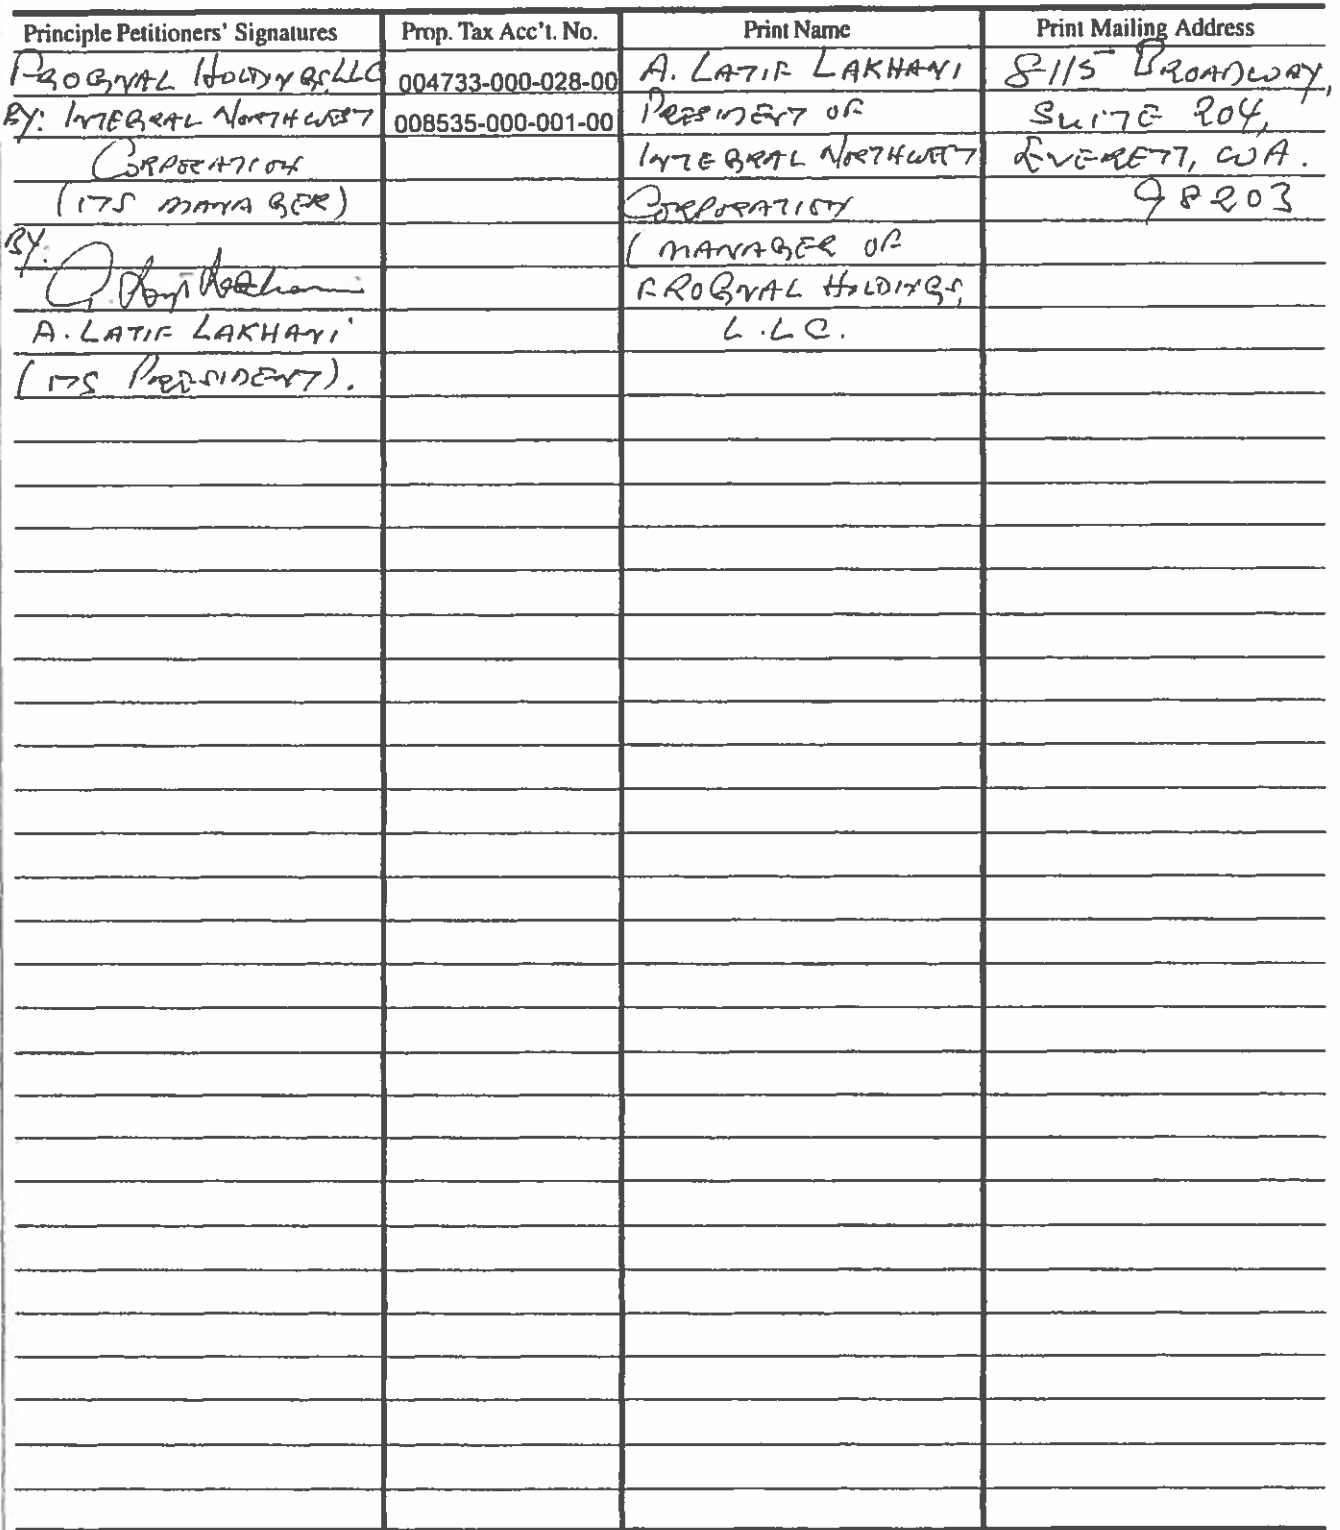 Principle Petitioners' Signatures Prop. Tax Acc't. No. Print Name Print Mailing Address
FROGNAL HOLDINGS, LLC 004733-000-028-00 A. LATIF LAKHANI 8115 BROADWAY,
BY: INTEGRAL NORTHWEST 008535-000-001-00 PRESIDENT OF SUITE 204,
CORPORATION INTEGRAL NORTHWEST EVERETT, WA.
(ITS MANAGER) CORPORATION 98203
BY: (MANAGER OF
FROGNAL HOLDINGS,
A. LATIF LAKHANI L.L.C.
(ITS PRESIDENT).